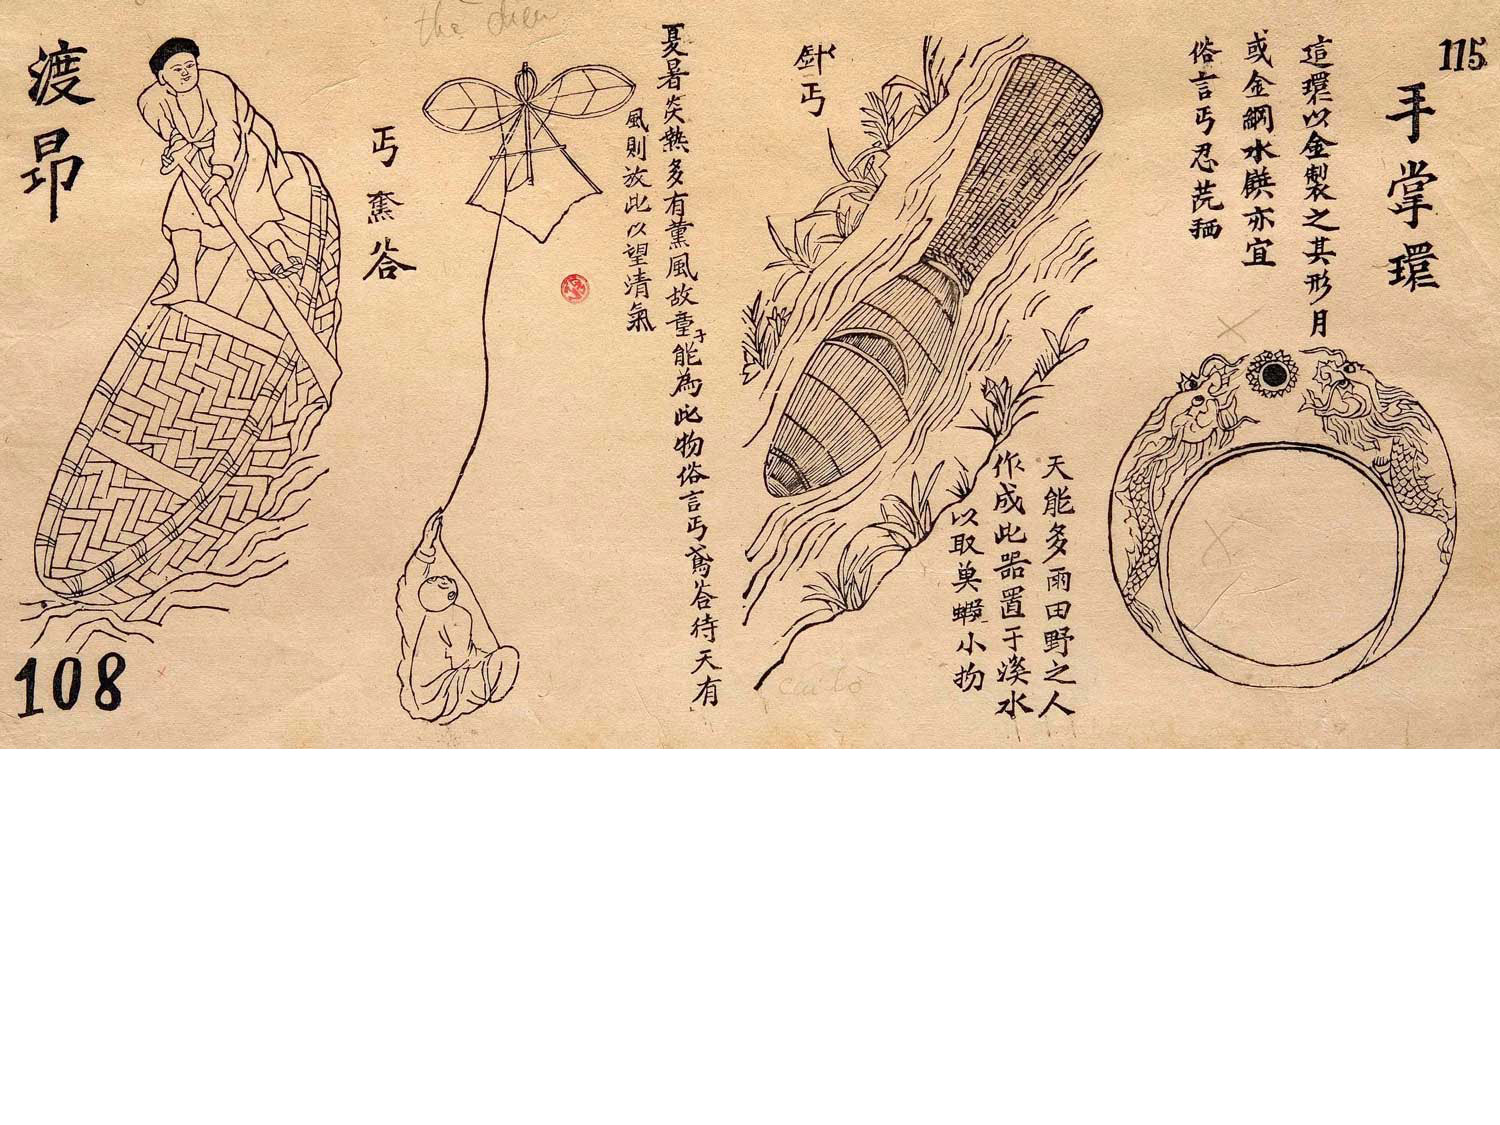 115
手掌環
這環以金製之其形月
或金鋼水鐷亦宜
俗言丐忍芫䄷
天能多雨田野之人
作成此器置于溪水
以取魚蝦小物
丐
夏暑炎熱多有薰風故童子能為此物俗言丐鳶答待天有
風則放此以望清氣
the diều
丐鴌答
渡昂
108